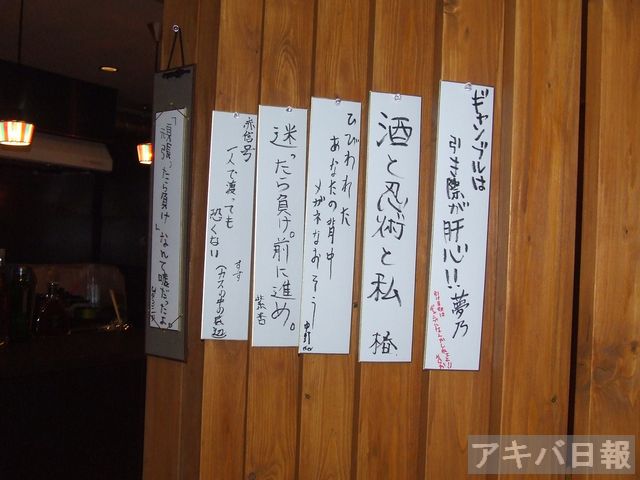 ギャンブルは
引き際が肝心!!
夢乃
酒と忍術と私
椿
ひびわれた
あなたの背中
メガネなおそう
迷ったら負け。前に進め。
紫杏
赤信号
一人で渡っても
恐くない
すず
「頑張ったら負け」なんて嘘だったよ
アキバ日報